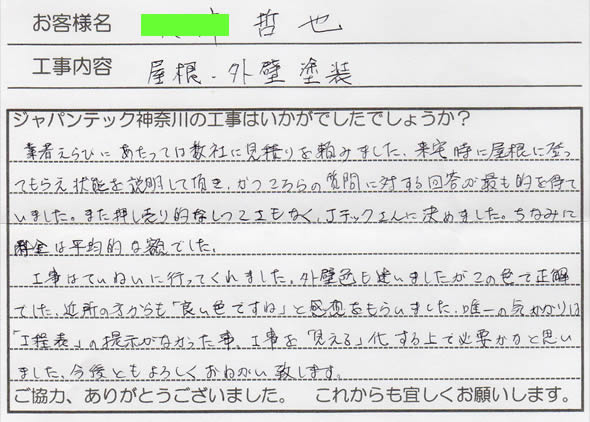 お客様名 哲也
工事内容 屋根・外壁塗装
ジャパンテック神奈川の工事はいかがでしたでしょうか？
業者えらびにあたっては数社に見積りを頼みました。来宅時に屋根に登っ
てもらえ状態を説明して頂き、かつこちらの質問に対する回答が最も的を得て
いました。また押し売り的なしつこさもなく、Jテックさんに決めました。ちなみに
料金は平均的な額でした。
工事はていねいに行ってくれました。外壁色も迷いましたがこの色で正解
でした。近所の方からも「良い色ですね」と感想をもらいました。唯一の気がかりは
「工程表」の提示がなかった事、工事を「見える」化する上で必要かなと思い
ました。今後ともよろしくおねがい致します。
ご協力、ありがとうございました。 これからも宜しくお願いします。